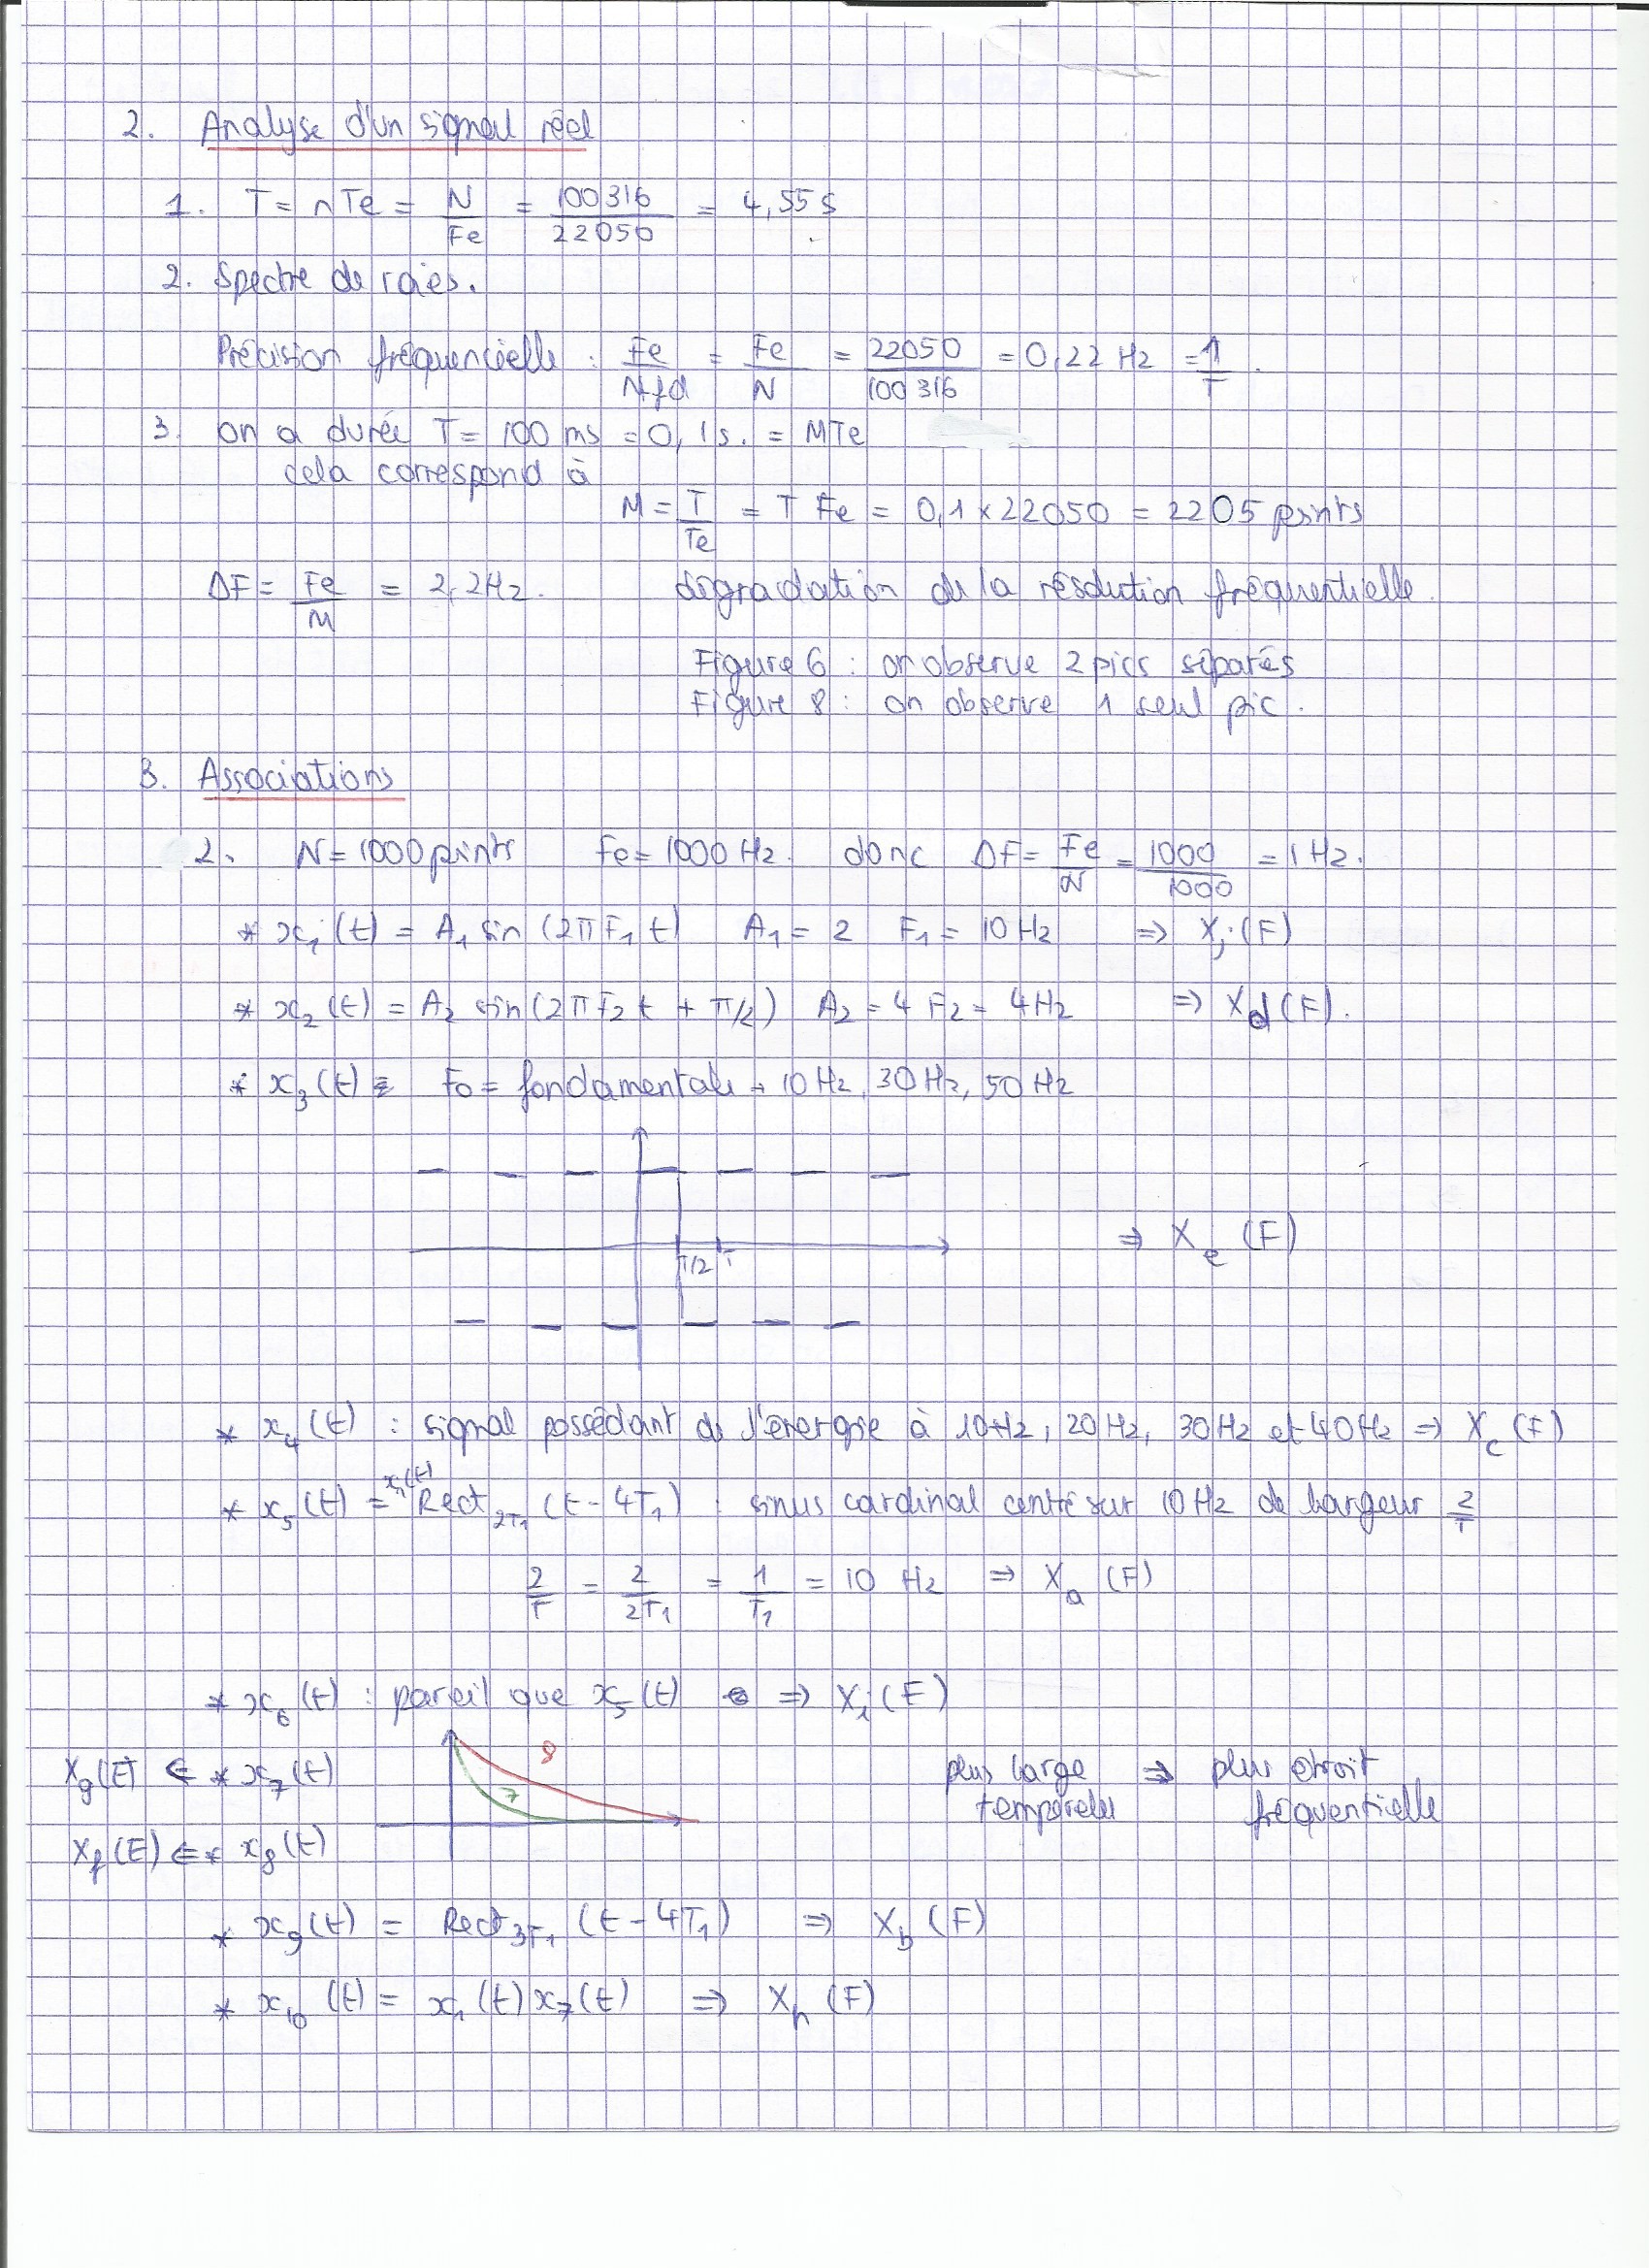 2. Analyse d'un signal réel
1. T = nTe = N/Fe = 100316/22050 = 4,55 s
2. Spectre de raies.
Précision fréquencielle : Fe/Nfd = Fe/N = 22050/100316 = 0,22 Hz = 1/T.
3. on a durée T = 100 ms = 0,1s. = MTe
cela correspond à
M = T/Te = T Fe = 0,1 x 22050 = 2205 points
ΔF = Fe/M = 2,2Hz. dégradation de la résolution fréquentielle.
Figure 6 : on observe 2 pics séparés
Figure 8 : on observe 1 seul pic.
3. Associations
2. N = 1000 points Fe = 1000 Hz. donc ΔF = Fe/N = 1000/1000 = 1 Hz.
* x₁(t) = A₁ sin (2πF₁t) A₁ = 2 F₁ = 10 Hz ⇒ Xj(F)
* x₂(t) = A₂ sin(2πF₂t + π/2) A₂ = 4 F₂ = 4Hz ⇒ Xd(F).
* x₃(t) = F₀ = fondamentale = 10 Hz, 30 Hz, 50 Hz
T/2 T ⇒ Xe (F)
* x₄(t) : signal possédant de l'énergie à 10Hz, 20Hz, 30Hz et 40Hz ⇒ Xc(F)
* x₅(t) = x₁(t) Rect₂T₁ (t - 4T₁) : sinus cardinal centré sur 10 Hz de largeur 2/T
2/T = 2/2T₁ = 1/T₁ = 10 Hz ⇒ Xa (F)
* x₆(t) : pareil que x₅(t) ⇒ Xi(F)
8
Xg(F) ⇐ * x₇(t) 7 plus large temporelle ⇒ plus étroit fréquentielle
Xf(F) ⇐ * x₈(t)
* x₉(t) = Rect₃T₁ (t - 4T₁) ⇒ Xb(F)
* x₁₀(t) = x₁(t) x₇(t) ⇒ Xh (F)